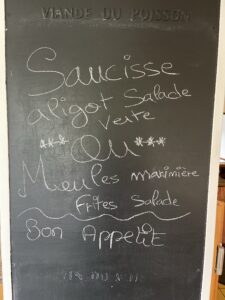 VIANDE OU POISSON
Saucisse
aligot Salade
verte
*** Ou ***
Moules marinière
Frites Salade
Bon Appetit